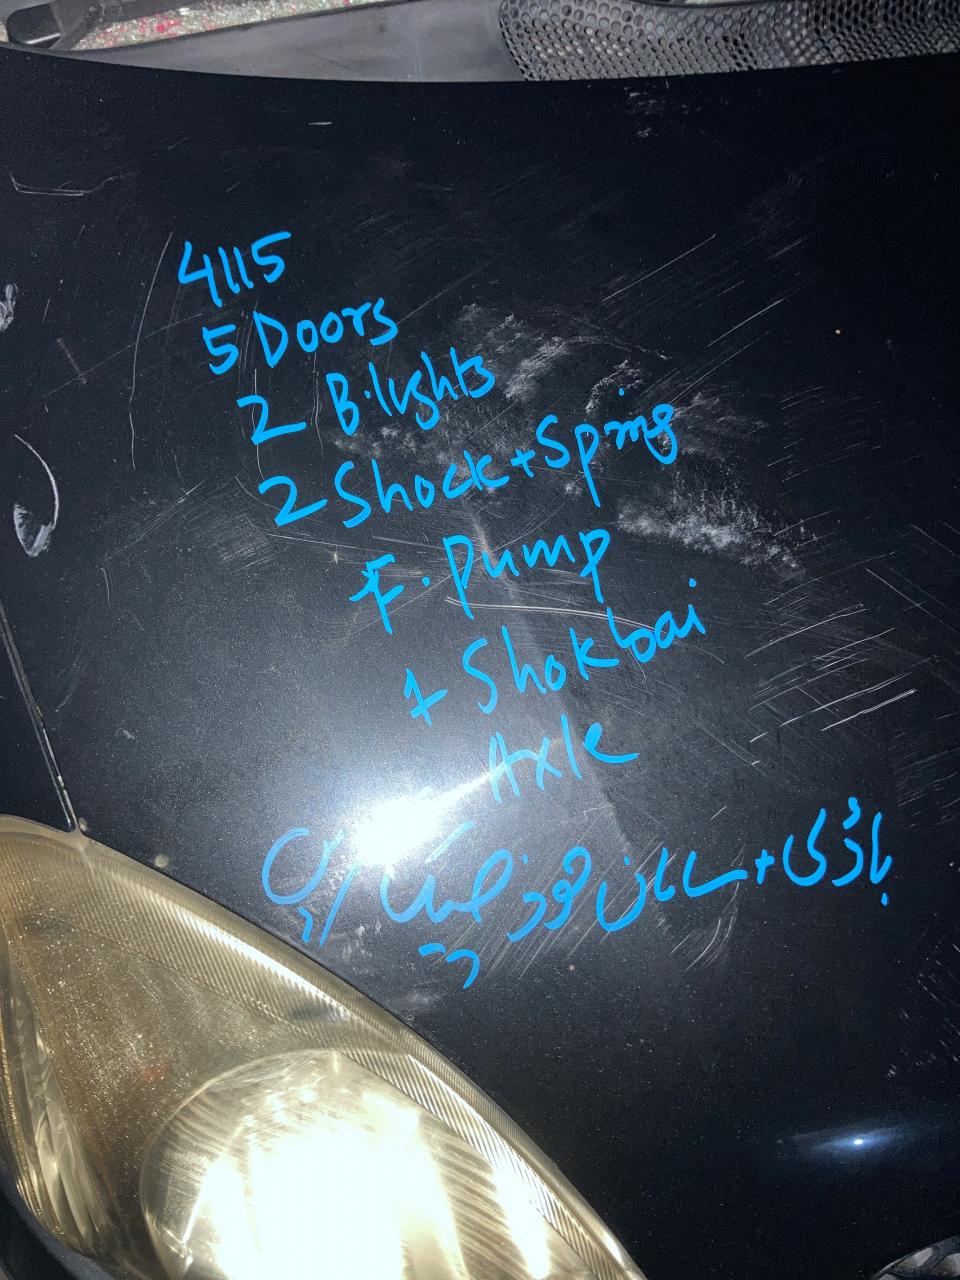 4115
5 Doors
2 B.lights
2 Shock+Spring
F. Pump
1 Shokbai
Axle
باڈی + سامان خود چیک کریں